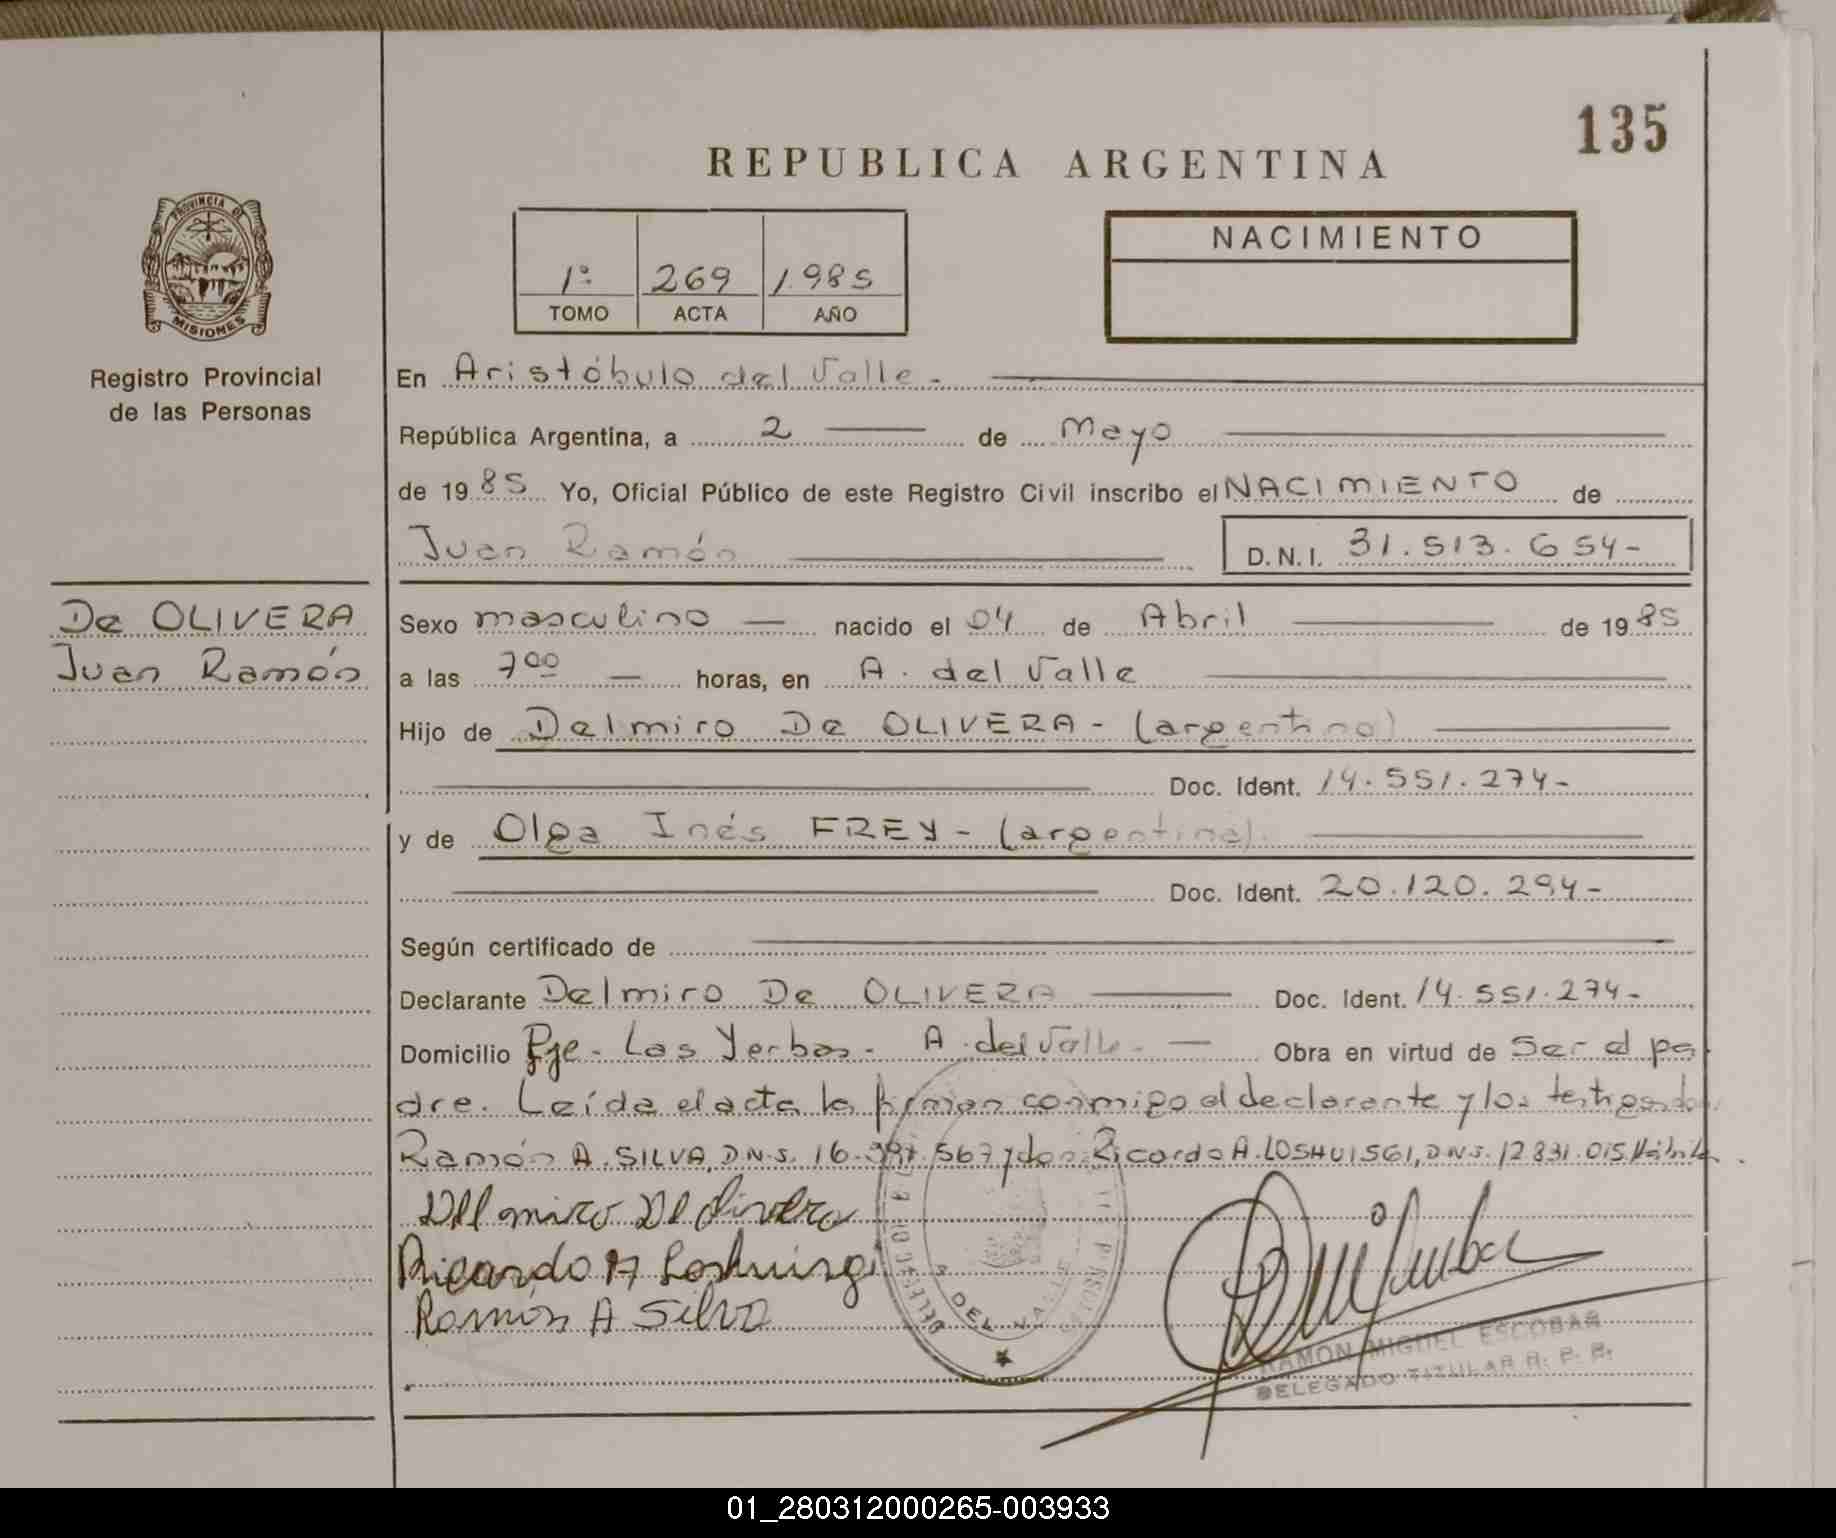 135
REPUBLICA ARGENTINA
PROVINCIA DE
MISIONES
Registro Provincial
de las Personas
1º 269 1.985
TOMO ACTA AÑO
NACIMIENTO
En Aristóbulo del Valle.-
República Argentina, a 2 de Mayo
de 1985 Yo, Oficial Público de este Registro Civil inscribo el NACIMIENTO de
Juan Ramón D.N.I. 31.513.654-
De OLIVERA
Juan Ramón
Sexo masculino nacido el 04 de Abril de 1985
a las 700 horas, en A. del Valle
Hijo de Delmiro De OLIVERA - (argentino)
Doc. Ident. 14.551.274-
y de Olga Inés FREY - (argentina).
Doc. Ident. 20.120.294-
Según certificado de
Declarante Delmiro De OLIVERA Doc. Ident. 14.551.274-
Domicilio Pje. Las Yerbas - A. del Valle - Obra en virtud de Ser el pa
dre. Leída el acta la firman conmigo el declarante y los testigos don
Ramón A. SILVA, D.N.I. 16.397.567 y don Ricardo A. LOSHUISGI, D.N.I. 12.831.015. Hábiles.
Delmiro De Olivera
Ricardo A Loshuisgi
Ramón A Silva
DEL VALLE
RAMON MIGUEL ESCOBAR
DELEGADO TITULAR R. P. P.
01_280312000265-003933